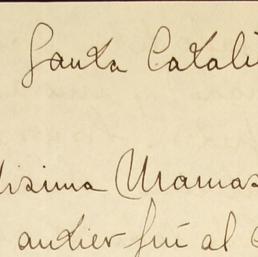 Santa Catali
disima Mamas
antier fui al